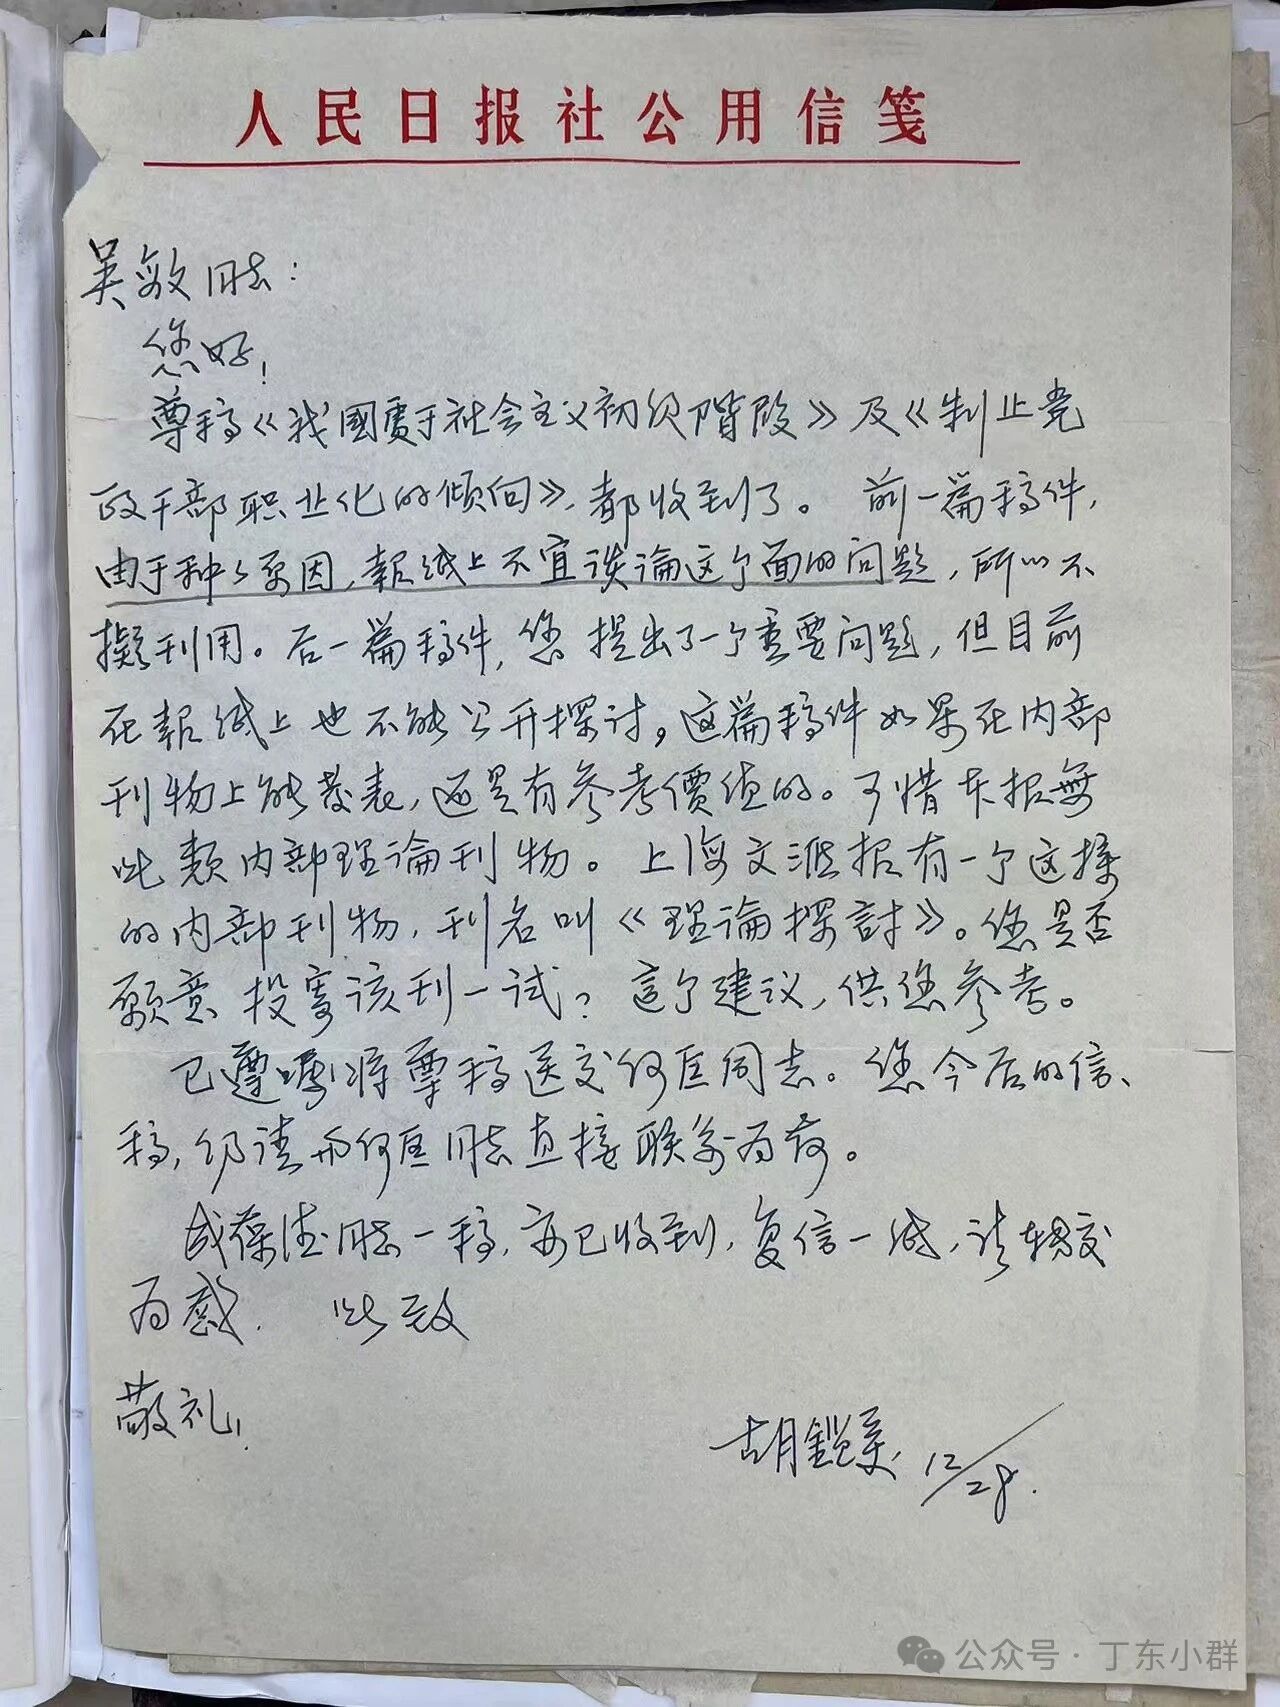 人民日报社公用信笺
吴敏同志：
您好！
尊稿《我國處于社会主义初级階段》及《制止党
政干部职业化的倾向》，都收到了。前一篇稿件，
由于种々原因，報纸上不宜谈論这方面的问题，所以不
擬刊用。后一篇稿件，您提出了一个重要问题，但目前
在報纸上也不能公开探讨，这篇稿件如果在内部
刊物上能发表，还是有参考價值的。可惜本报無
此類内部理論刊物。上海文汇报有一个这樣
的内部刊物，刊名叫《理論探討》。您是否
願意投寄该刊一试？這个建议，供您参考。
已遵嘱将尊稿送交何匡同志。您今后的信、
稿，仍请与何匡同志直接联系为荷。
成葆德同志一稿，亦已收到，复信一纸，请转交
为感。 此致
敬礼！
胡鎧 12/28.
公众号·丁东小群